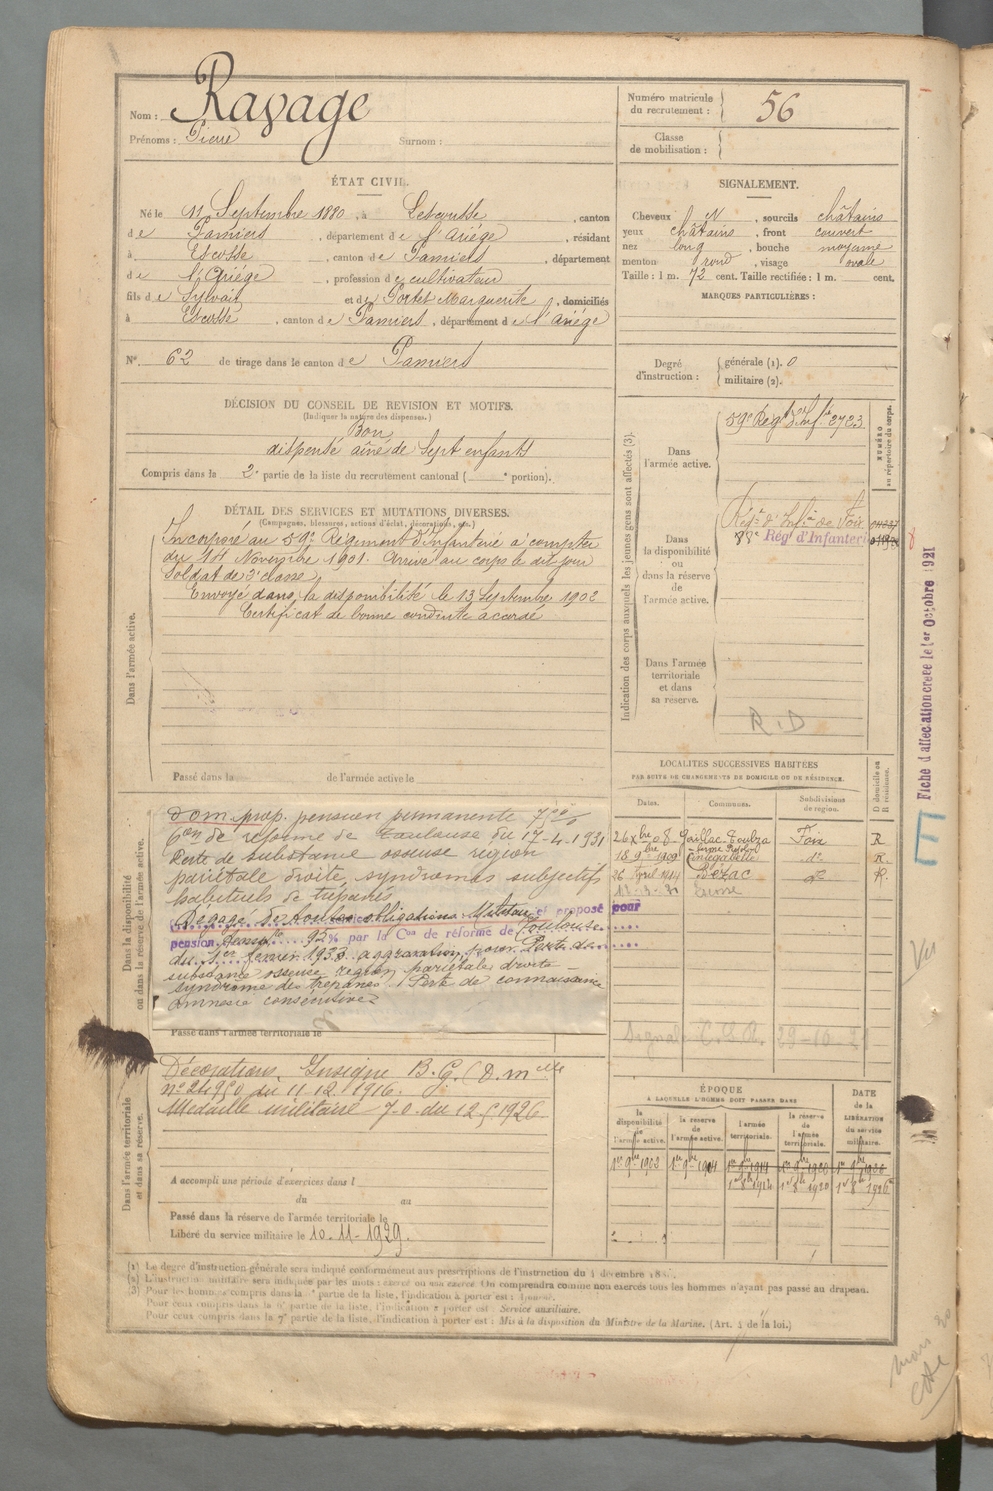 Nom : Ravage
Prénoms : Pierre Surnom :
Numéro matricule du recrutement : 56
Classe de mobilisation :
ÉTAT CIVIL.
Né le 11 Septembre 1880, à Lescousse, canton
de Pamiers, département de l'Ariége, résidant
à Escosse, canton de Pamiers, département
de l'Ariége, profession de cultivateur
fils de Sylvain et de Portet Marguerite, domiciliés
à Escosse, canton de Pamiers, département de l'Ariége
N°. 62 de tirage dans le canton de Pamiers
SIGNALEMENT.
Cheveux N, sourcils châtains
yeux châtains, front couvert
nez long, bouche moyenne
menton rond, visage ovale
Taille : 1 m. 72 cent. Taille rectifiée : 1 m. cent.
MARQUES PARTICULIÈRES :
Degré d'instruction : générale (1). 0
militaire (2).
DÉCISION DU CONSEIL DE REVISION ET MOTIFS.
(Indiquer la nature des dispenses.)
Bon
dispensé aîné de Sept enfants
Compris dans la 2e partie de la liste du recrutement cantonal ( e portion).
DÉTAIL DES SERVICES ET MUTATIONS DIVERSES.
(Campagnes, blessures, actions d'éclat, décorations, etc.)
Dans l'armée active.
Incorporé au 59e Régiment d'Infanterie à compter
du 14 Novembre 1901. Arrivé au corps le dit jour
Soldat de 2e classe
Envoyé dans la disponibilité le 13 Septembre 1902
Certificat de bonne conduite accordé
Passé dans la de l'armée active le
Indication des corps auxquels les jeunes gens sont affectés (3).
NUMÉRO au répertoire du corps.
Dans l'armée active.
59e Régt d'Infie 2723
Dans la disponibilité ou dans la réserve de l'armée active.
Régt d'Infie de Foix
83e Rég d'Infanterie
Dans l'armée territoriale et dans sa réserve.
R.D
Fiche d'affectation créée le 1er Octobre 1921
LOCALITÉS SUCCESSIVES HABITÉES
PAR SUITE DE CHANGEMENTS DE DOMICILE OU DE RÉSIDENCE.
D domicile ou R résidence.
Dates. Communes. Subdivisions de région.
26 Xbre 08 Gaillac-Toulza Foix R
18 9bre 1909 Cintegabelle do R.
26 Avril 1914 Bézac do R.
Escosse
Signalé C.S.R. 29-10-2
Dans la disponibilité ou dans la réserve de l'armée active.
Dom. prop. pension permanente 70 %
Con de réforme de Toulouse du 17-4-1931
Perte de substance osseuse région
pariétale droite, syndromes subjectifs
habituels de trépanés
Dégagé de toutes obligations Militaires et proposé pour
pension 95 % par la Con de réforme de Toulouse
du 1er février 1933. aggravation pour Perte de
substance osseuse région pariétale droite
syndrome des trépanés. Perte de connaissance
amnésie consécutive
Passé dans l'armée territoriale le
Dans l'armée territoriale et dans sa réserve.
Décorations Insigne B.G. (D.melle
no 24950 du 11.12.1916.
Médaille militaire J.O. du 12 5 1926
A accompli une période d'exercices dans l
du au
Passé dans la réserve de l'armée territoriale le
Libéré du service militaire le 10-11-1929.
ÉPOQUE
À LAQUELLE L'HOMME DOIT PASSER DANS
DATE de la LIBÉRATION du service militaire.
la disponibilité de l'armée active. la réserve de l'armée active. l'armée territoriale. la réserve de l'armée territoriale.
1er 9bre 1903 1er 9bre 1904 1er 9bre 1914 1er 9bre 1920 1er 9bre 1926
1er 8bre 1914 1er 8bre 1920 1er 8bre 1926
(1) Le degré d'instruction générale sera indiqué conformément aux prescriptions de l'instruction du 4 décembre
(2) L'instruction militaire sera indiquée par les mots : exercé ou non exercé. On comprendra comme non exercés tous les hommes n'ayant pas passé au drapeau.
(3) Pour les hommes compris dans la partie de la liste, l'indication à porter est :
Pour ceux compris dans la 6e partie de la liste, l'indication à porter est : Service auxiliaire.
Pour ceux compris dans la 7e partie de la liste, l'indication à porter est : Mis à la disposition du Ministre de la Marine. (Art. 4 de la loi.)
Vu